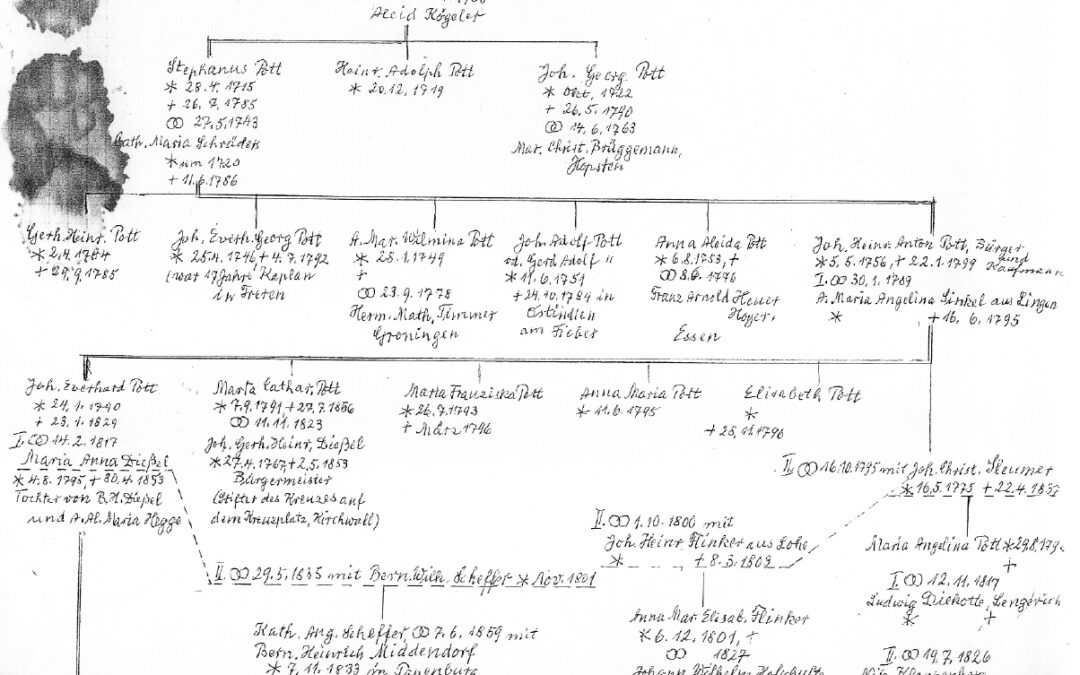 Aleid Kögeler
Stephanus Pott
* 28.4.1715
+ 26.7.1785
∞ 27.5.1743
Cath. Maria Schröder
* um 1720
+ 11.6.1786
Heinr. Adolph Pott
* 20.12.1719
Joh. Georg Pott
* Okt. 1722
+ 26.5.1790
∞ 14.6.1763
Mar. Christ. Brüggemann,
Hopsten
Gerh. Heinr. Pott
* 2.4.1744
+ 29.9.1785
Joh. Everh. Georg Pott
* 25.4.1746 + 4.7.1792
(war 17 Jahre Kaplan
in Freren
A. Mar. Wilmina Pott
* 25.1.1749
+
∞ 23.9.1778
Herm. Math. Timmer
Groningen
Joh. Adolf Pott
od. Gerh. Adolf "
* 11.6.1751
+ 24.10.1784 in
Ostindien
am Fieber
Anna Aleida Pott
* 6.8.1753, +
∞ 8.6.1776
Franz Arnold Heuer
Hoyer,
Essen
Joh. Heinr. Anton Pott, Bürger
und
Kaufmann
* 5.5.1756, + 22.1.1799
I. ∞ 30.1.1789
A. Maria Angelina Sinkel aus Lingen
* + 16.6.1795
Joh. Everhard Pott
* 24.1.1790
+ 23.1.1829
I. ∞ 14.2.1817
Maria Anna Dießel
* 4.8.1795, + 30.4.1853
Tochter von B.H. Dießel
und A. Al. Maria Hegge
Maria Cathar. Pott
* 7.9.1791 + 27.7.1856
∞ 11.11.1823
Joh. Gerh. Heinr. Dießel
* 27.4.1767 + 2.5.1853
Bürgermeister
(Stifter des Kreuzes auf
dem Kreuzplatz, Kirchwall)
Maria Franziska Pott
* 26.7.1793
+ März 1796
Anna Maria Pott
* 11.6.1795
Elisabeth Pott
*
+ 25.11.1796
II. ∞ 16.10.1795 mit Joh. Christ. Sleumer
* 16.5.1775 + 22.4.1837
II. ∞ 1.10.1800 mit
Joh. Heinr. Flinker aus Lohe
* + 8.3.1802
Maria Angelina Pott * 29.8.179
+
I. ∞ 12.11.1817
Ludwig Diekotte, Lengerich
* +
II. ∞ 19.7.1826
II. ∞ 29.5.1835 mit Bern. Wilh. Scheffer * Nov. 1801
Kath. Ang. Scheffer, ∞ 7.6.1859 mit
Bern. Heinrich Middendorf
* 7.11.1833 in
Anna Mar. Elisab. Flinker
* 6.12.1801, +
∞ 1827
Johann Wilhelm